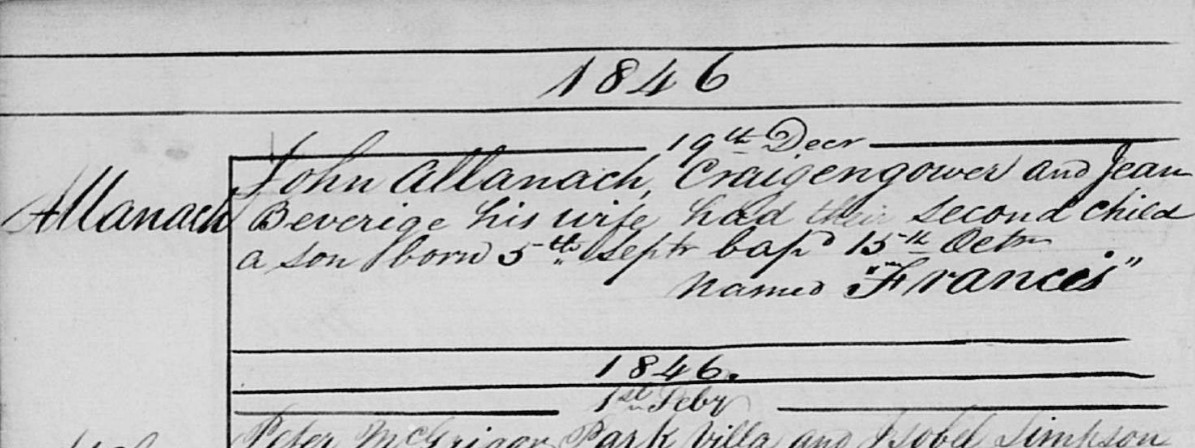 1846
19th Decr
Allanach
John Allanach, Craigengower and Jean
Beverige his wife had their second child
a son born 5th Septr bapd 15th Octr
Named "Francis"
1846.
1st Feby
Peter McGrigor Park Villa and Isobel Simpson